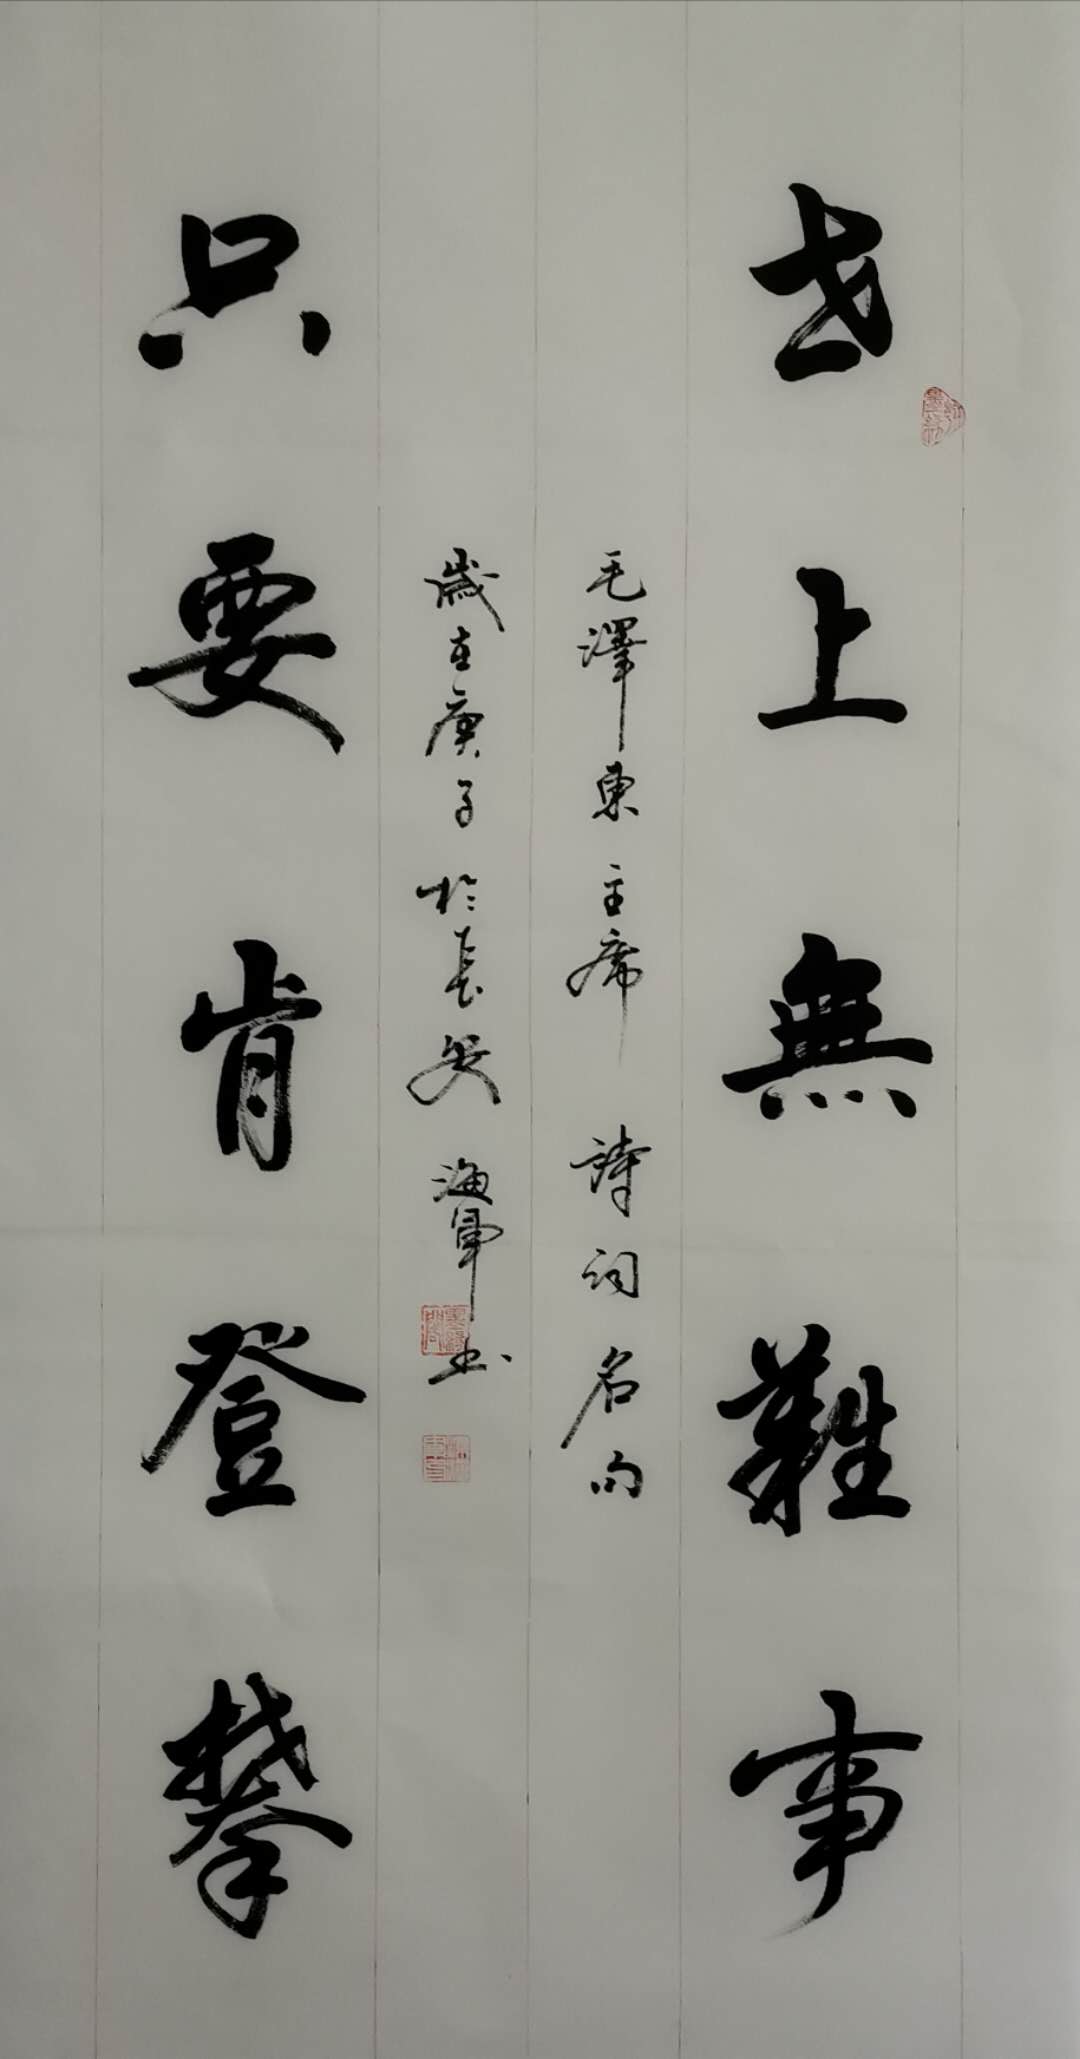 世上無難事
毛澤東主席 詩詞名句
歲在庚子於長安 海軍书
只要肯登攀